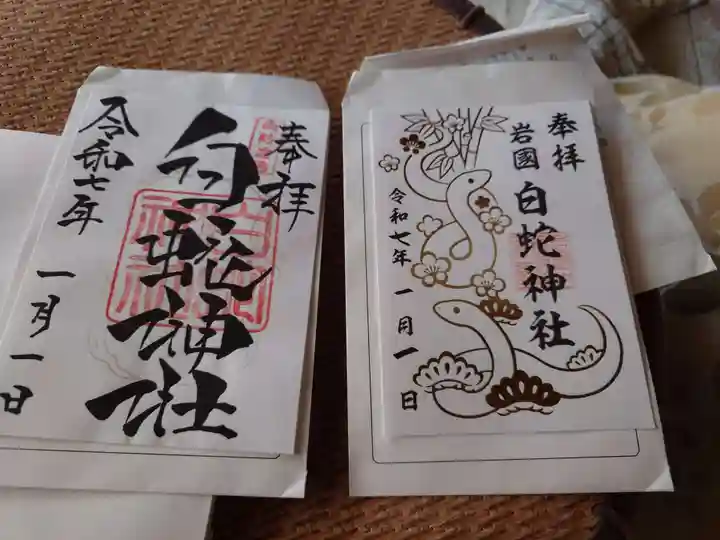 奉拝
白蛇神社
令和七年
一月一日
奉拝
岩國
白蛇神社
令和七年 一月一日